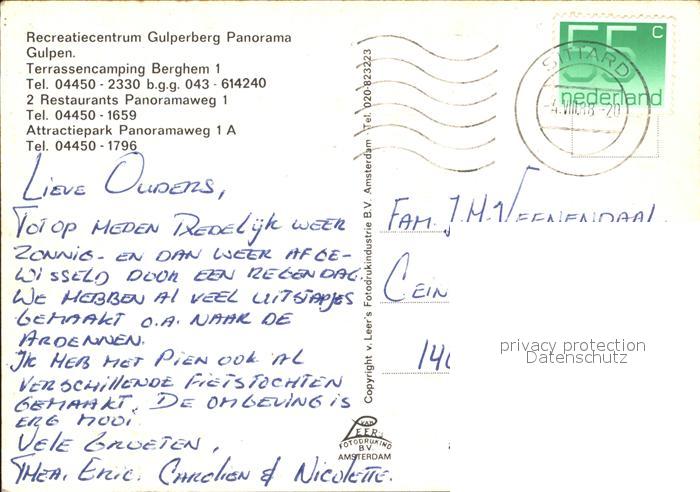 Recreatiecentrum Gulperberg Panorama
Gulpen.
Terrassencamping Berghem 1
Tel. 04450 - 2330 b.g.g. 043 - 614240
2 Restaurants Panoramaweg 1
Tel. 04450 - 1659
Attractiepark Panoramaweg 1 A
Tel. 04450 - 1796
LIEVE OUDERS,
TOT OP HEDEN REDELIJK WEER
ZONNIG - EN DAN WEER AFGE-
WISSELD DOOR EEN REGENDAG.
WE HEBBEN AL VEEL UITSTAPJES
GEMAAKT O.A. NAAR DE
ARDENNEN.
IK HEB MET PIEN OOK AL
VERSCHILLENDE FIETSTOCHTEN
GEMAAKT. DE OMGEVING IS
ERG MOOI.
VELE GROETEN,
THEA, ERIC, CAROLIEN & NICOLETTE.
Copyright v. Leer's Fotodrukindustrie B.V. Amsterdam - Tel. 020-823223
VAN
LEER
FOTODRUKIND
B.V.
AMSTERDAM
55 C
nederland
SITTARD
-4.VIII.88 -20
FAM. J.H. VEENENDAAL
CEIN
privacy protection
Datenschutz